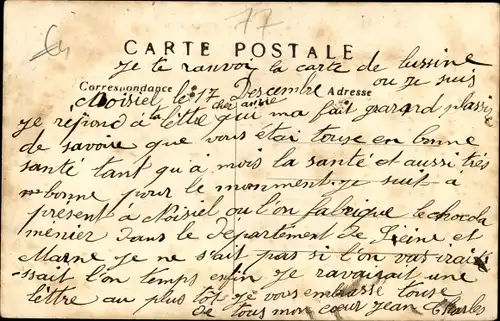 77
CARTE POSTALE
je te ranvoi la carte de lussine
Correspondance Adresse
ou je suis
Noisiel le 17 Descembre
cher amie
je repond à la lettre qui ma fait grarand plassir
de savoire que vous étai touse en bonne
santé tant qu'a mois la santé et aussi très
bonne pour le monument je suit a
présent à Noisiel ou l'on fabrique le chocola
menier dans le département de Seine et
Marne je ne s'ait pas si l'on vas
ssait l'on temps enfin je ravairait une
lettre au plus tôt je vous embrasse touse
de tous mon cœur Jean Charles